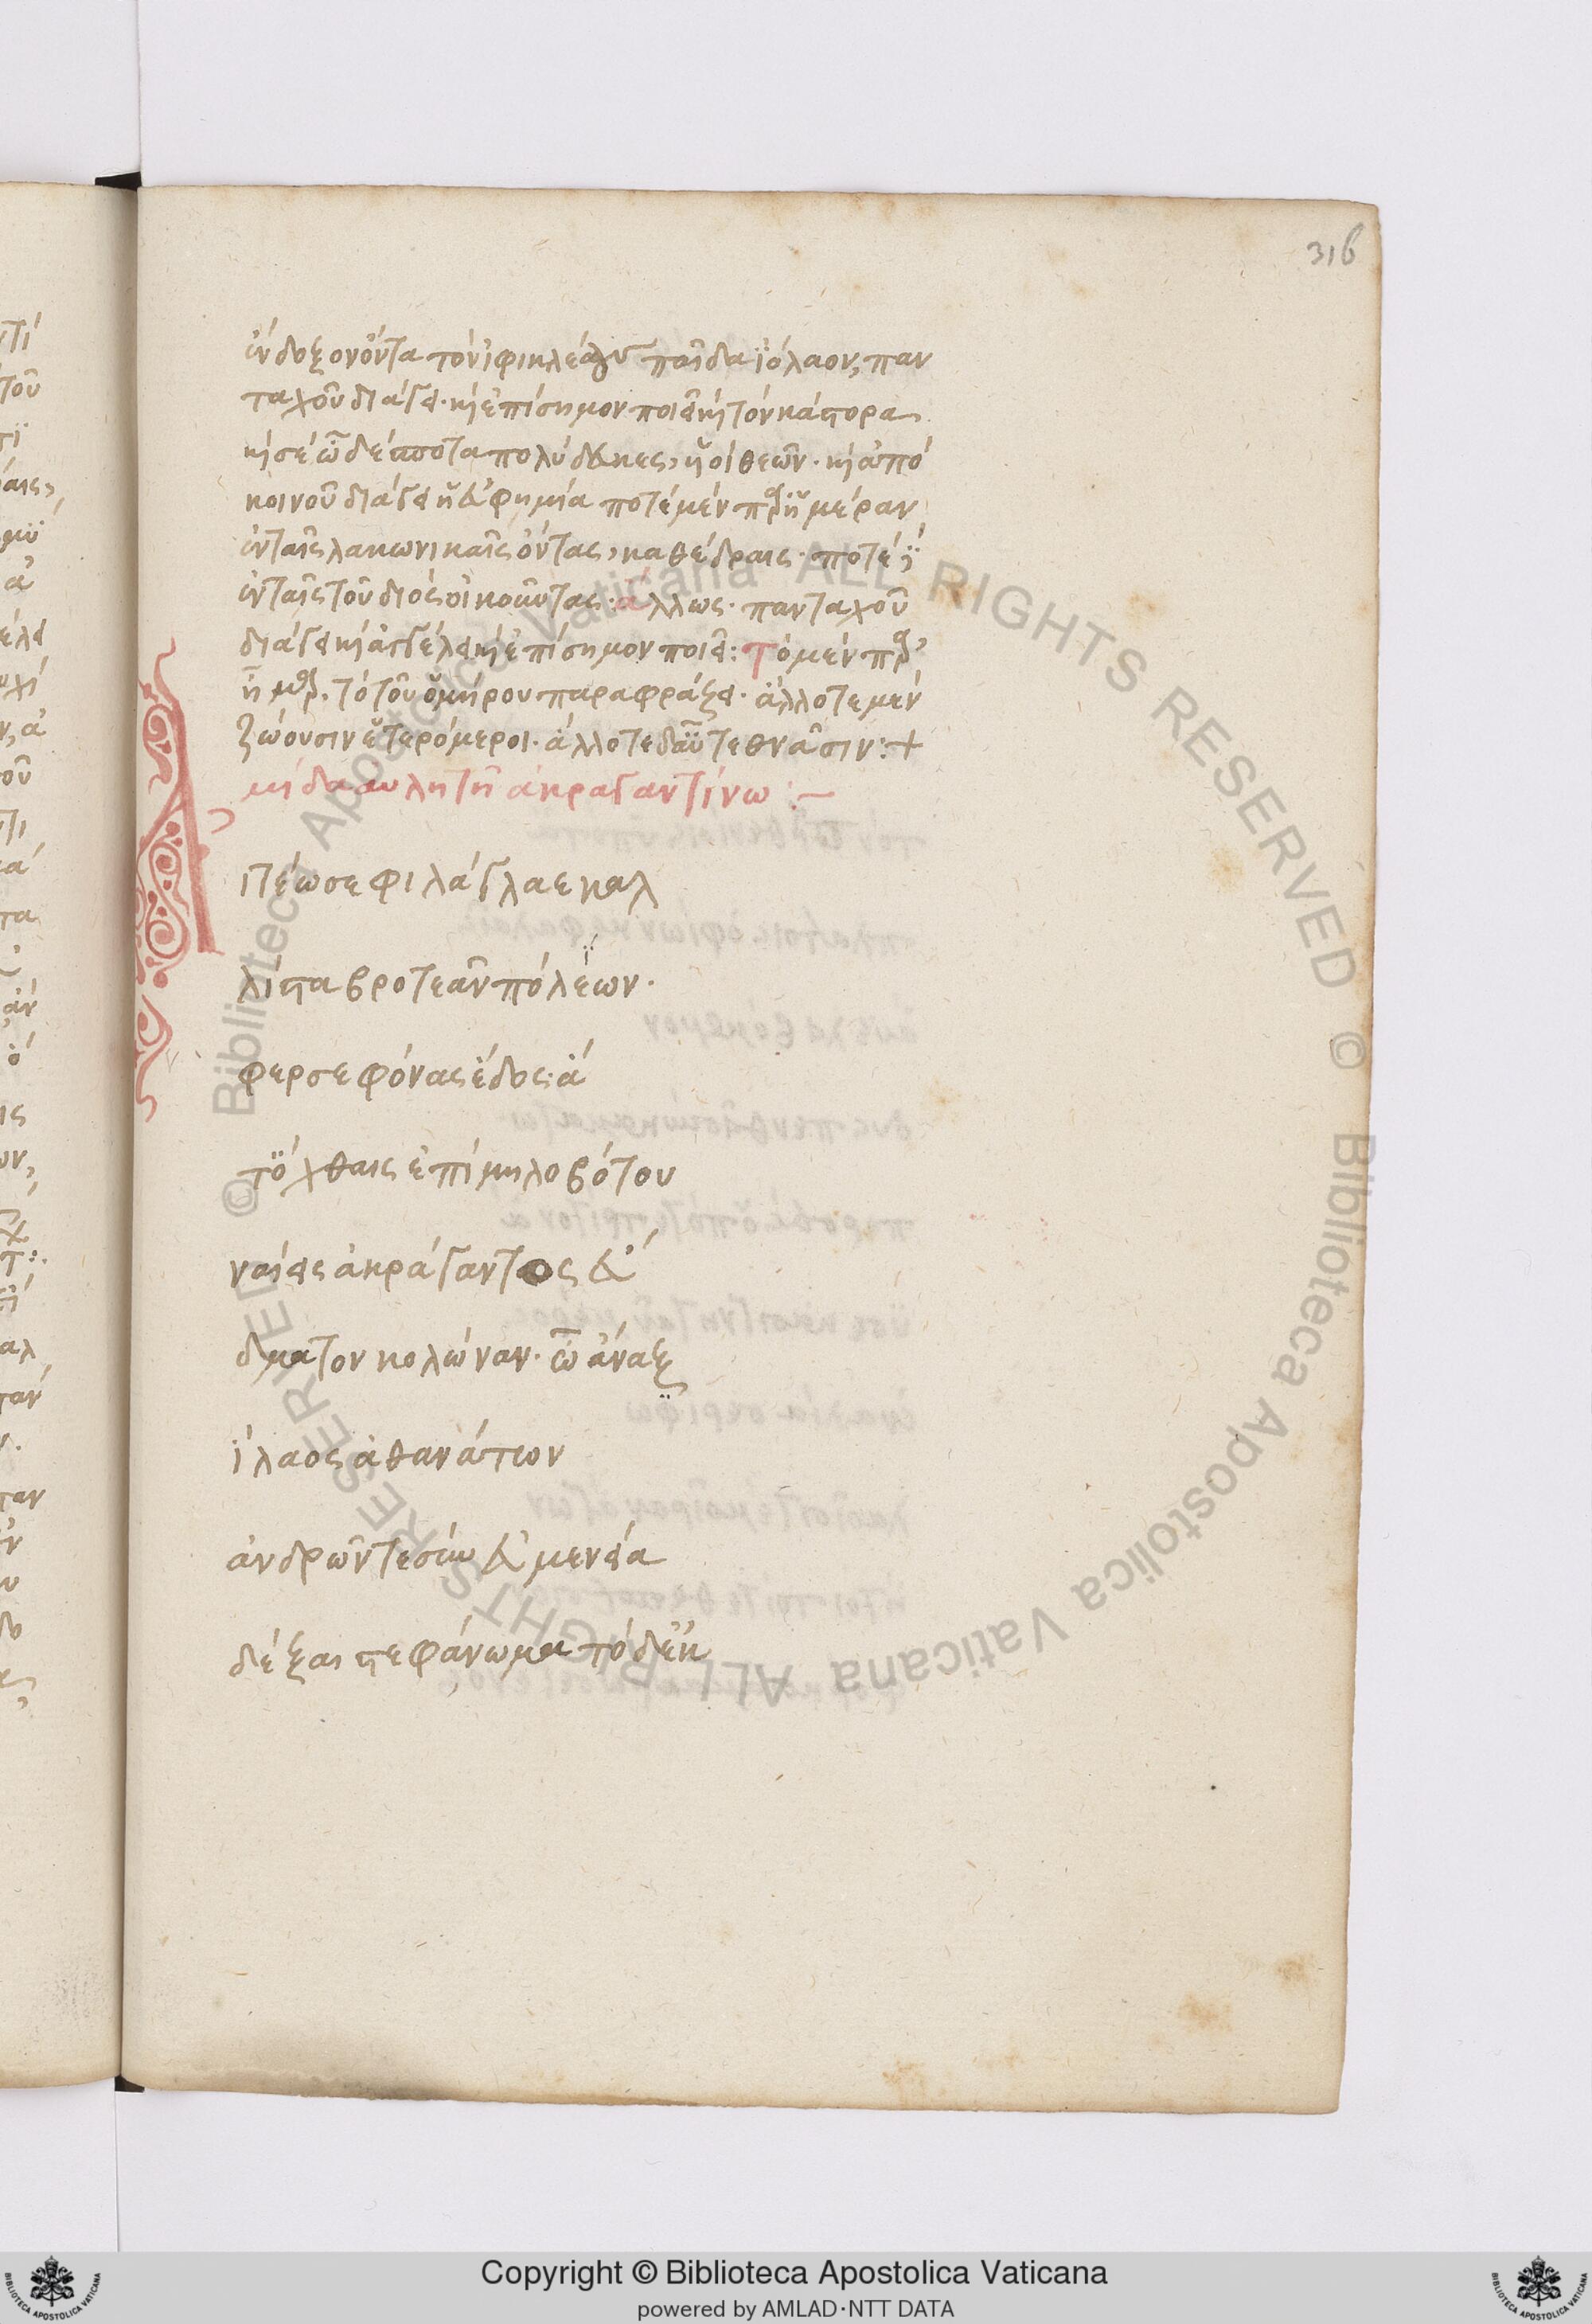 316
ἔνδοξον ὄντα τὸν ἰφικλέους παῖδα ϊόλαον, παν
ταχοῦ διάγει· καὶ ἐπίσημον ποιεῖ καὶ τὸν κάστορα
καὶ σὲ ὦ δέσποτα πολύδευκες, υἱοὶ θεῶν· καὶ ἀπὸ
κοινοῦ διάγει ἡ εὐφημία ποτὲ μὲν παρ' ἡμέραν
ἐν ταῖς λακωνικαῖς ὄντας, καθέδραις· ποτὲ δὲ
ἐν ταῖς τοῦ διὸς οἰκοῦντας: ἄλλως· πανταχοῦ
διάγει καὶ ἀγγέλει καὶ ἐπίσημον ποιεῖ: τὸ μὲν παρ'
ἦμαρ. τὸ τοῦ ὁμήρου παραφράζει· ἄλλοτε μὲν
ζώουσιν ἑτερόμεροι· ἄλλοτε δ' αὖτε θνᾶσιν:+
μίδα αὐλητῆ ἀκραγαντίνω :–
Αἰτέω σε φιλάγλαε καλ
λίστα βροτεᾶν πόλεων·
φερσεφόνας ἕδος· ἅ
τ' ὄχθαις ἐπὶ μηλοβότου
ναίεις ἀκράγαντος εὔ
δματον κολώναν· ὦ ἄναξ
ἵλαος ἀθανάτων
ἀνδρῶν τε σὺν εὐμενεία
δέξαι στεφάνωμα τόδ' ἐκ
Copyright © Biblioteca Apostolica Vaticana
powered by AMLAD·NTT DATA
© Biblioteca Apostolica Vaticana ALL RIGHTS RESERVED © Biblioteca Apostolica Vaticana ALL RIGHTS RESERVED